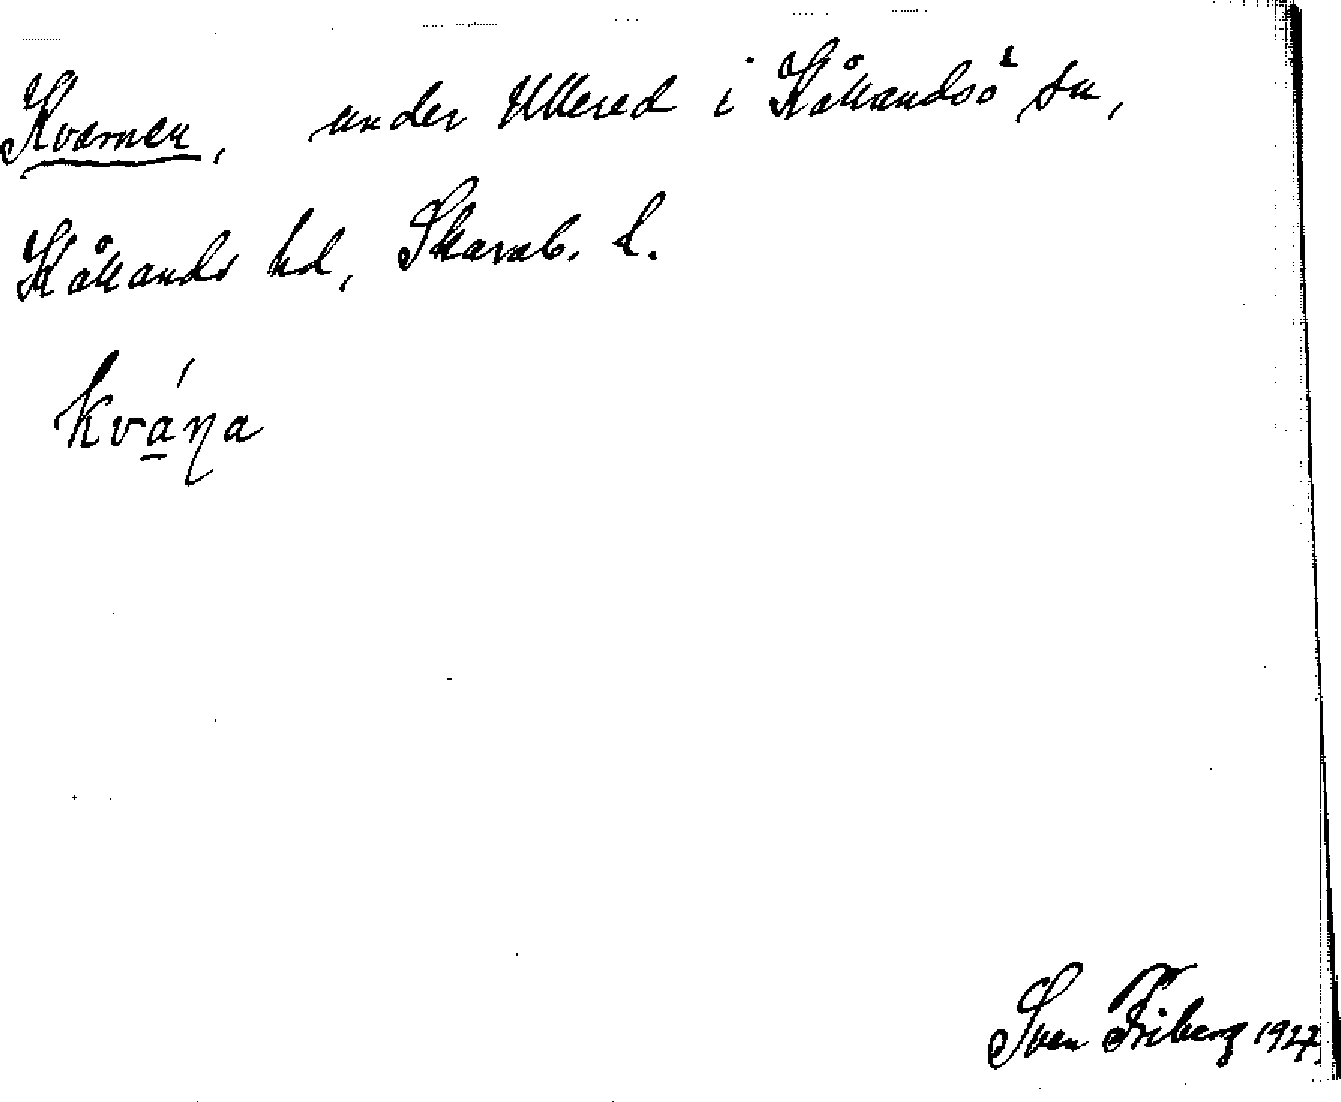 Kvarnen, under Ullered i Kållandsö sn,
Kållands hd, Skarab. l.
kvá̱ɳa
Sven Friberg 1927.